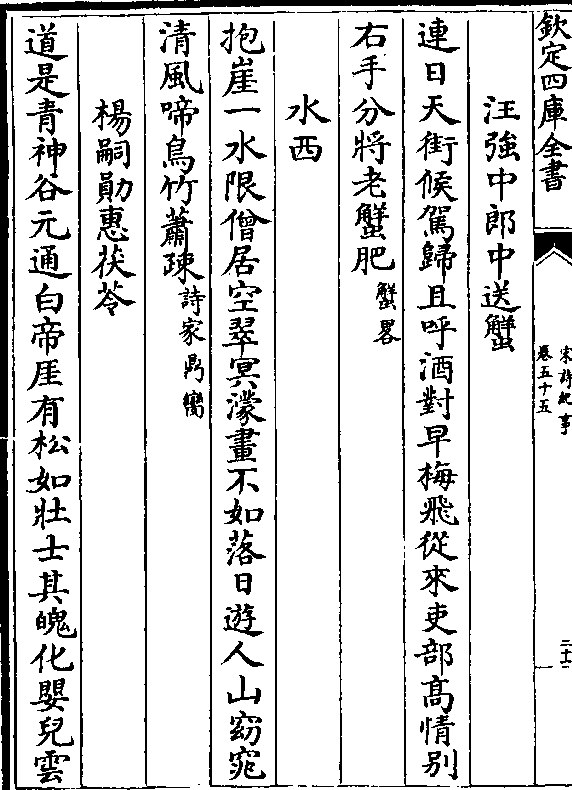 欽定四庫全書
宋詩紀事
卷五十五
汪強中郎中送蟹
連日天街候駕歸且呼酒對早梅飛從來吏部高情别
右手分將老蟹肥蟹畧
水西
抱崖一水限僧居空翠冥濛畫不如落日遊人山窈窕
清風啼鳥竹蕭疎詩家鼎臠
楊嗣勛惠茯苓
道是青神谷元通白帝厓有松如壯士其魄化嬰兒雲